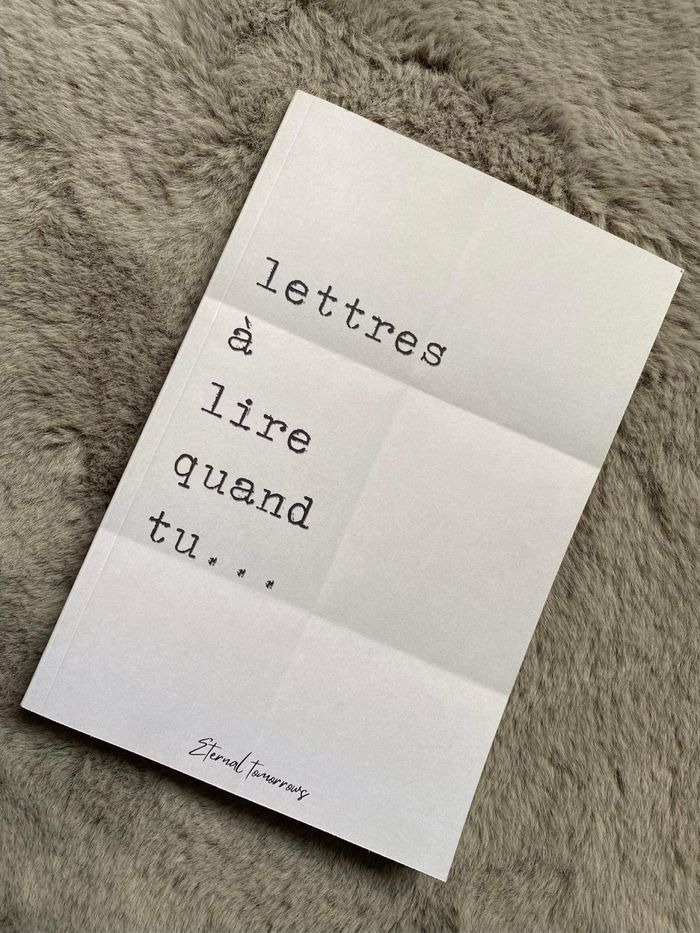 lettres
à
lire
quand
tu...
Eternal tomorrows